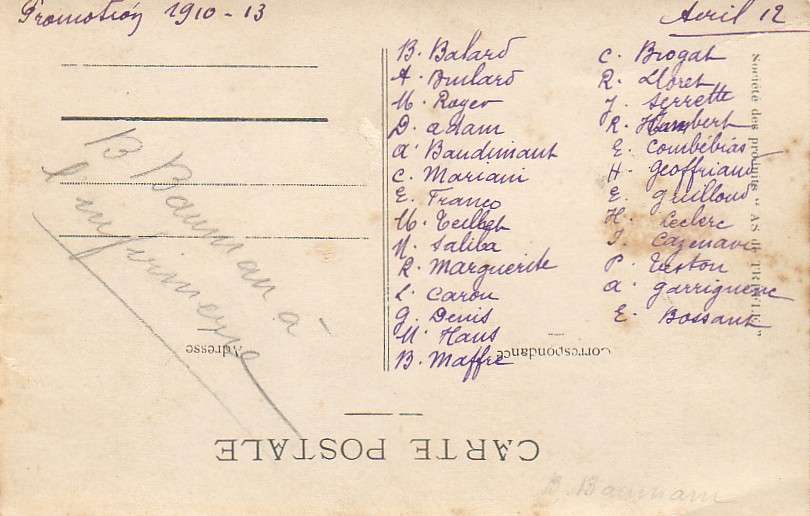 Promotion 1910-13
Avril 12
B. Balard
A. Builard
M. Royer
D. Adam
A. Baudimant
C. Mariani
E. Franco
M. Teillet
N. Saliba
R. Marguerite
L. Carou
G. Denis
M. Haus
B. Maffre
C. Brogat
R. Lloret
J. Serrette
R. Hambert
E. Combébias
H. Geoffriaud
E. Guilloud
H. Leclerc
J. Cazenave
P. Teston
A. Garrigue
E. Bossant
B Bauman à
l'infirmerie
Société des produits "AS de TREFLE"
Adresse
Correspondance
CARTE POSTALE
B. Baumann